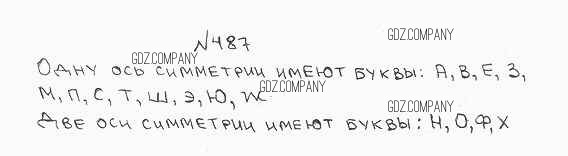 №487
GDZ.COMPANY
GDZ.COMPANY
Одну ось симметрии имеют буквы: А, В, Е, З,
М, П, С, Т, Ш, Э, Ю, Ж
GDZ.COMPANY
GDZ.COMPANY
Две оси симметрии имеют буквы: Н, О, Ф, Х